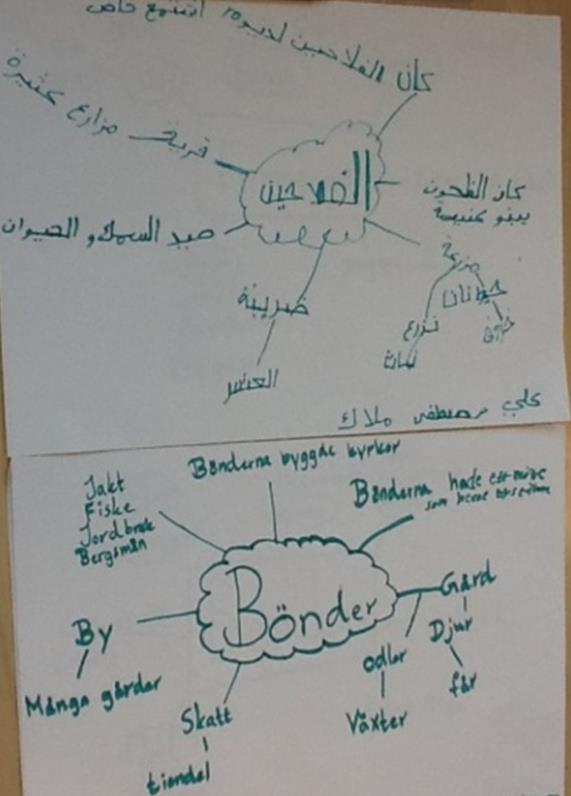 كان الفلاحين لديهم اجتمع خاص
قرية مزارع كثيرة
الفلاحين
كان الفلحون
يبنو كنيسة
صيد السمك و الحيوان
مزرعة
حيوانات
خروف
تزرع
نبات
ضريبة
العشر
علي مصطفى ملاك
Bönderna byggde kyrkor
Jakt
Fiske
Jordbruk
Bergsmän
Bönderna hade ett
som
Bönder
Gård
Djur
får
odlar
Växter
By
Många gårdar
Skatt
tiondel